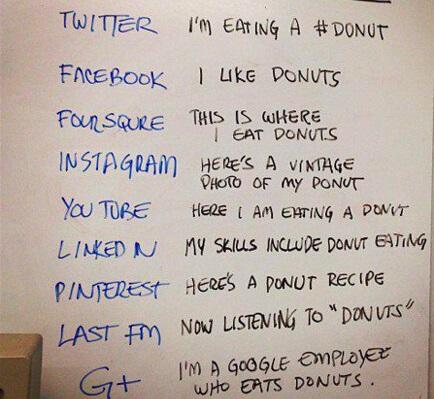 TWITTER I'M EATING A #DONUT
FACEBOOK I LIKE DONUTS
FOURSQURE THIS IS WHERE
I EAT DONUTS
INSTAGRAM HERE'S A VINTAGE
PHOTO OF MY DONUT
YOU TUBE HERE I AM EATING A DONUT
LINKED IN MY SKILLS INCLUDE DONUT EATING
PINTEREST HERE'S A DONUT RECIPE
LAST FM NOW LISTENING TO "DONUTS"
G+ I'M A GOOGLE EMPLOYEE
WHO EATS DONUTS.